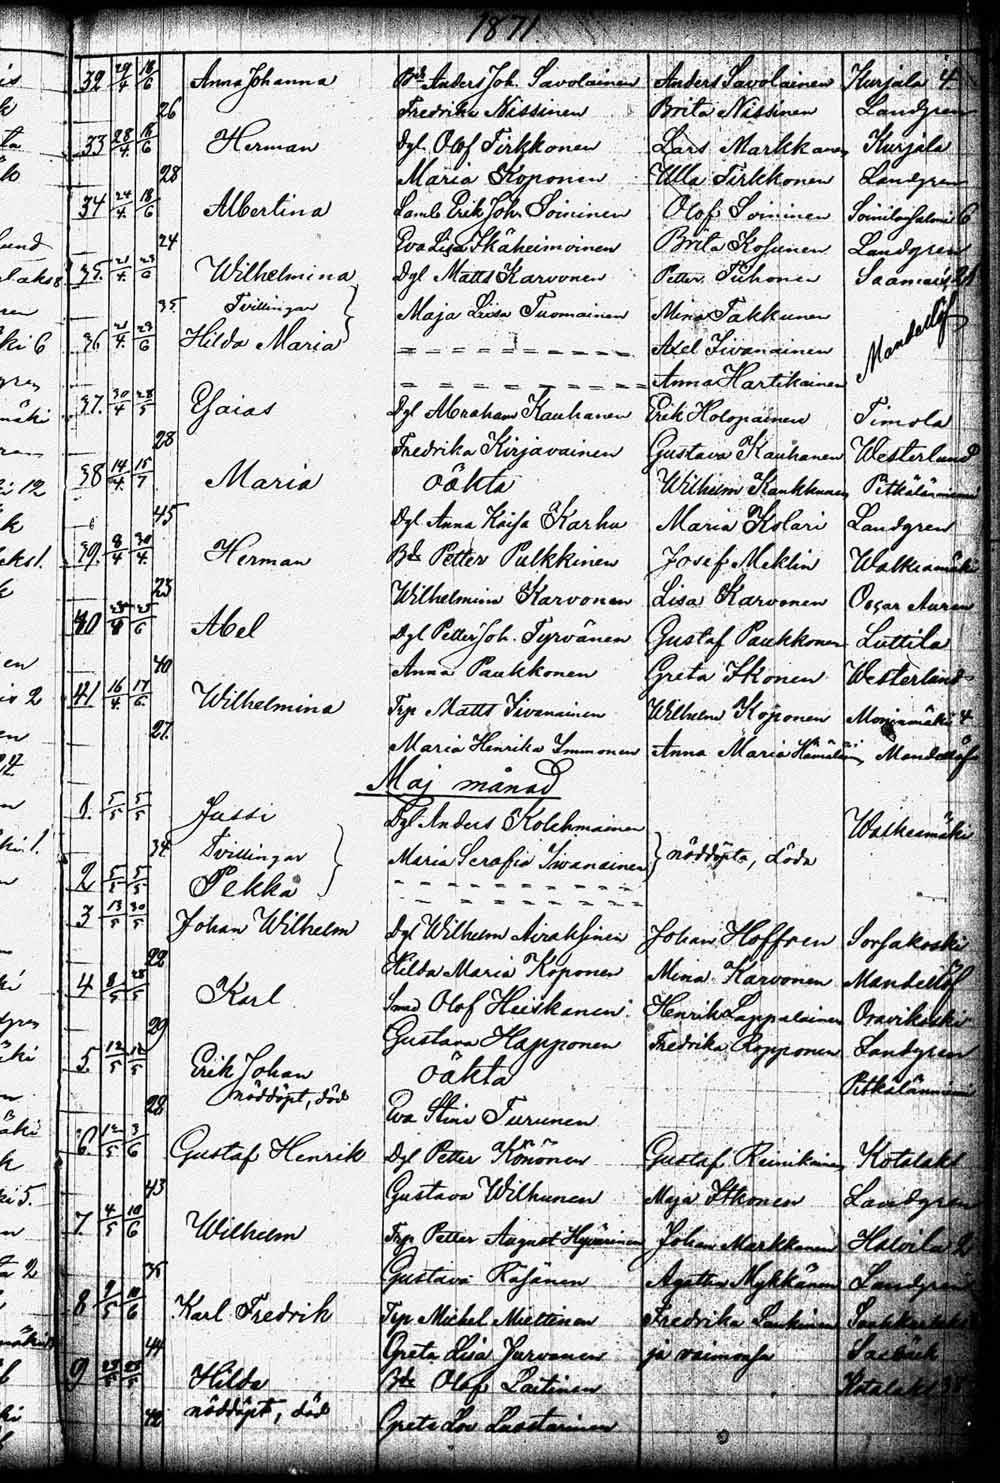 1871
32 29/4 18/6 Anna Johanna Bd Anders Joh. Savolainen Anders Savolainen Kurjala 4
26 Fredrika Nissinen Brita Nissinen Landgren
33 28/4 18/6 Herman Dgl Olof Tirkkonen Lars Markkanen Kurjala
28 Maria Koponen Ulla Tirkkonen Landgren
34 24/4 18/6 Albertina Erik Joh. Soininen Olof Soininen 6
24 Eva Lisa Ikäheimoinen Brita Kosunen Landgren
35. 21/4 23/6 Wilhelmina Dgl Matts Karvonen Petter Tuhonen
35 Tvillingar Maja Liisa Tuomainen Mina Takkunen
36 21/4 23/6 Hilda Maria Axel Iivanainen Mandellöf
Anna Hartikainen
37. 30/4 28/5 Esaias Dgl Abraham Kauhanen Erik Holopainen Timola
28 Fredrika Kirjavainen Gustava Kauhanen Westerlund
38 14/4 15/7 Maria oäkta Wilhelm Kaukkunen Pitkälänniemi
45 Dgl Anna Kaisa Karhu Maria Kolari Landgren
39. 8/4 30/4 Herman Bde Petter Pulkkinen Josef Meklin Walkeamäki
23 Wilhelmina Karvonen Lisa Karvonen Oscar Auren
40 25/6 Abel Dgl Petter Joh. Tyrvänen Gustaf Paukkonen Luttila
40 Anna Paukkonen Greta Itkonen Westerlund
41 16/4 17/6 Wilhelmina Trp Matts Iivanainen Wilhelm Koponen Moninmäki 4
27. Maria Henrika Immonen Anna Maria Hämäläinen Mandellöf
Maj månad
1. 5/5 5/5 Jussi Dgl Anders Kolehmainen Walkeamäki
34 Tvillingar Maria Serafia Iivanainen nöddöpta, döda
2 5/5 5/5 Pekka
3 13/5 30/5 Johan Wilhelm Dgl Wilhelm Airaksinen Johan Hoffren Sorsakoski
22 Hilda Maria Koponen Mina Karvonen Mandellöf
4 8/5 28/5 Karl Smed Olof Heiskanen Henrik Lappalainen Oravikoski
29 Gustava Happonen Fredrika Ropponen Landgren
5. 12/5 12/5 Erik Johan oäkta Pitkälänniemi
28 nöddöpt, död Eva Stina Turunen
6. 12/5 3/6 Gustaf Henrik Dgl Petter Könönen Gustaf Reinikainen Kotalaks
43 Gustava Wilhunen Maja Itkonen Landgren
7. 4/5 10/6 Wilhelm Trp Petter August Hyvärinen Johan Markkanen Halvila 2
35 Gustava Räsänen Agatha Mykkänen Landgren
8 9/5 10/6 Karl Fredrik Trp Michel Miettinen Fredrika Laukinen
44 Greta Lisa Jurvanen ja vaimonsa
9 25/5 25/5 Hilda Bde Olof Laitinen Kotalaks
42 nöddöpt, död Greta Lov Luostarinen